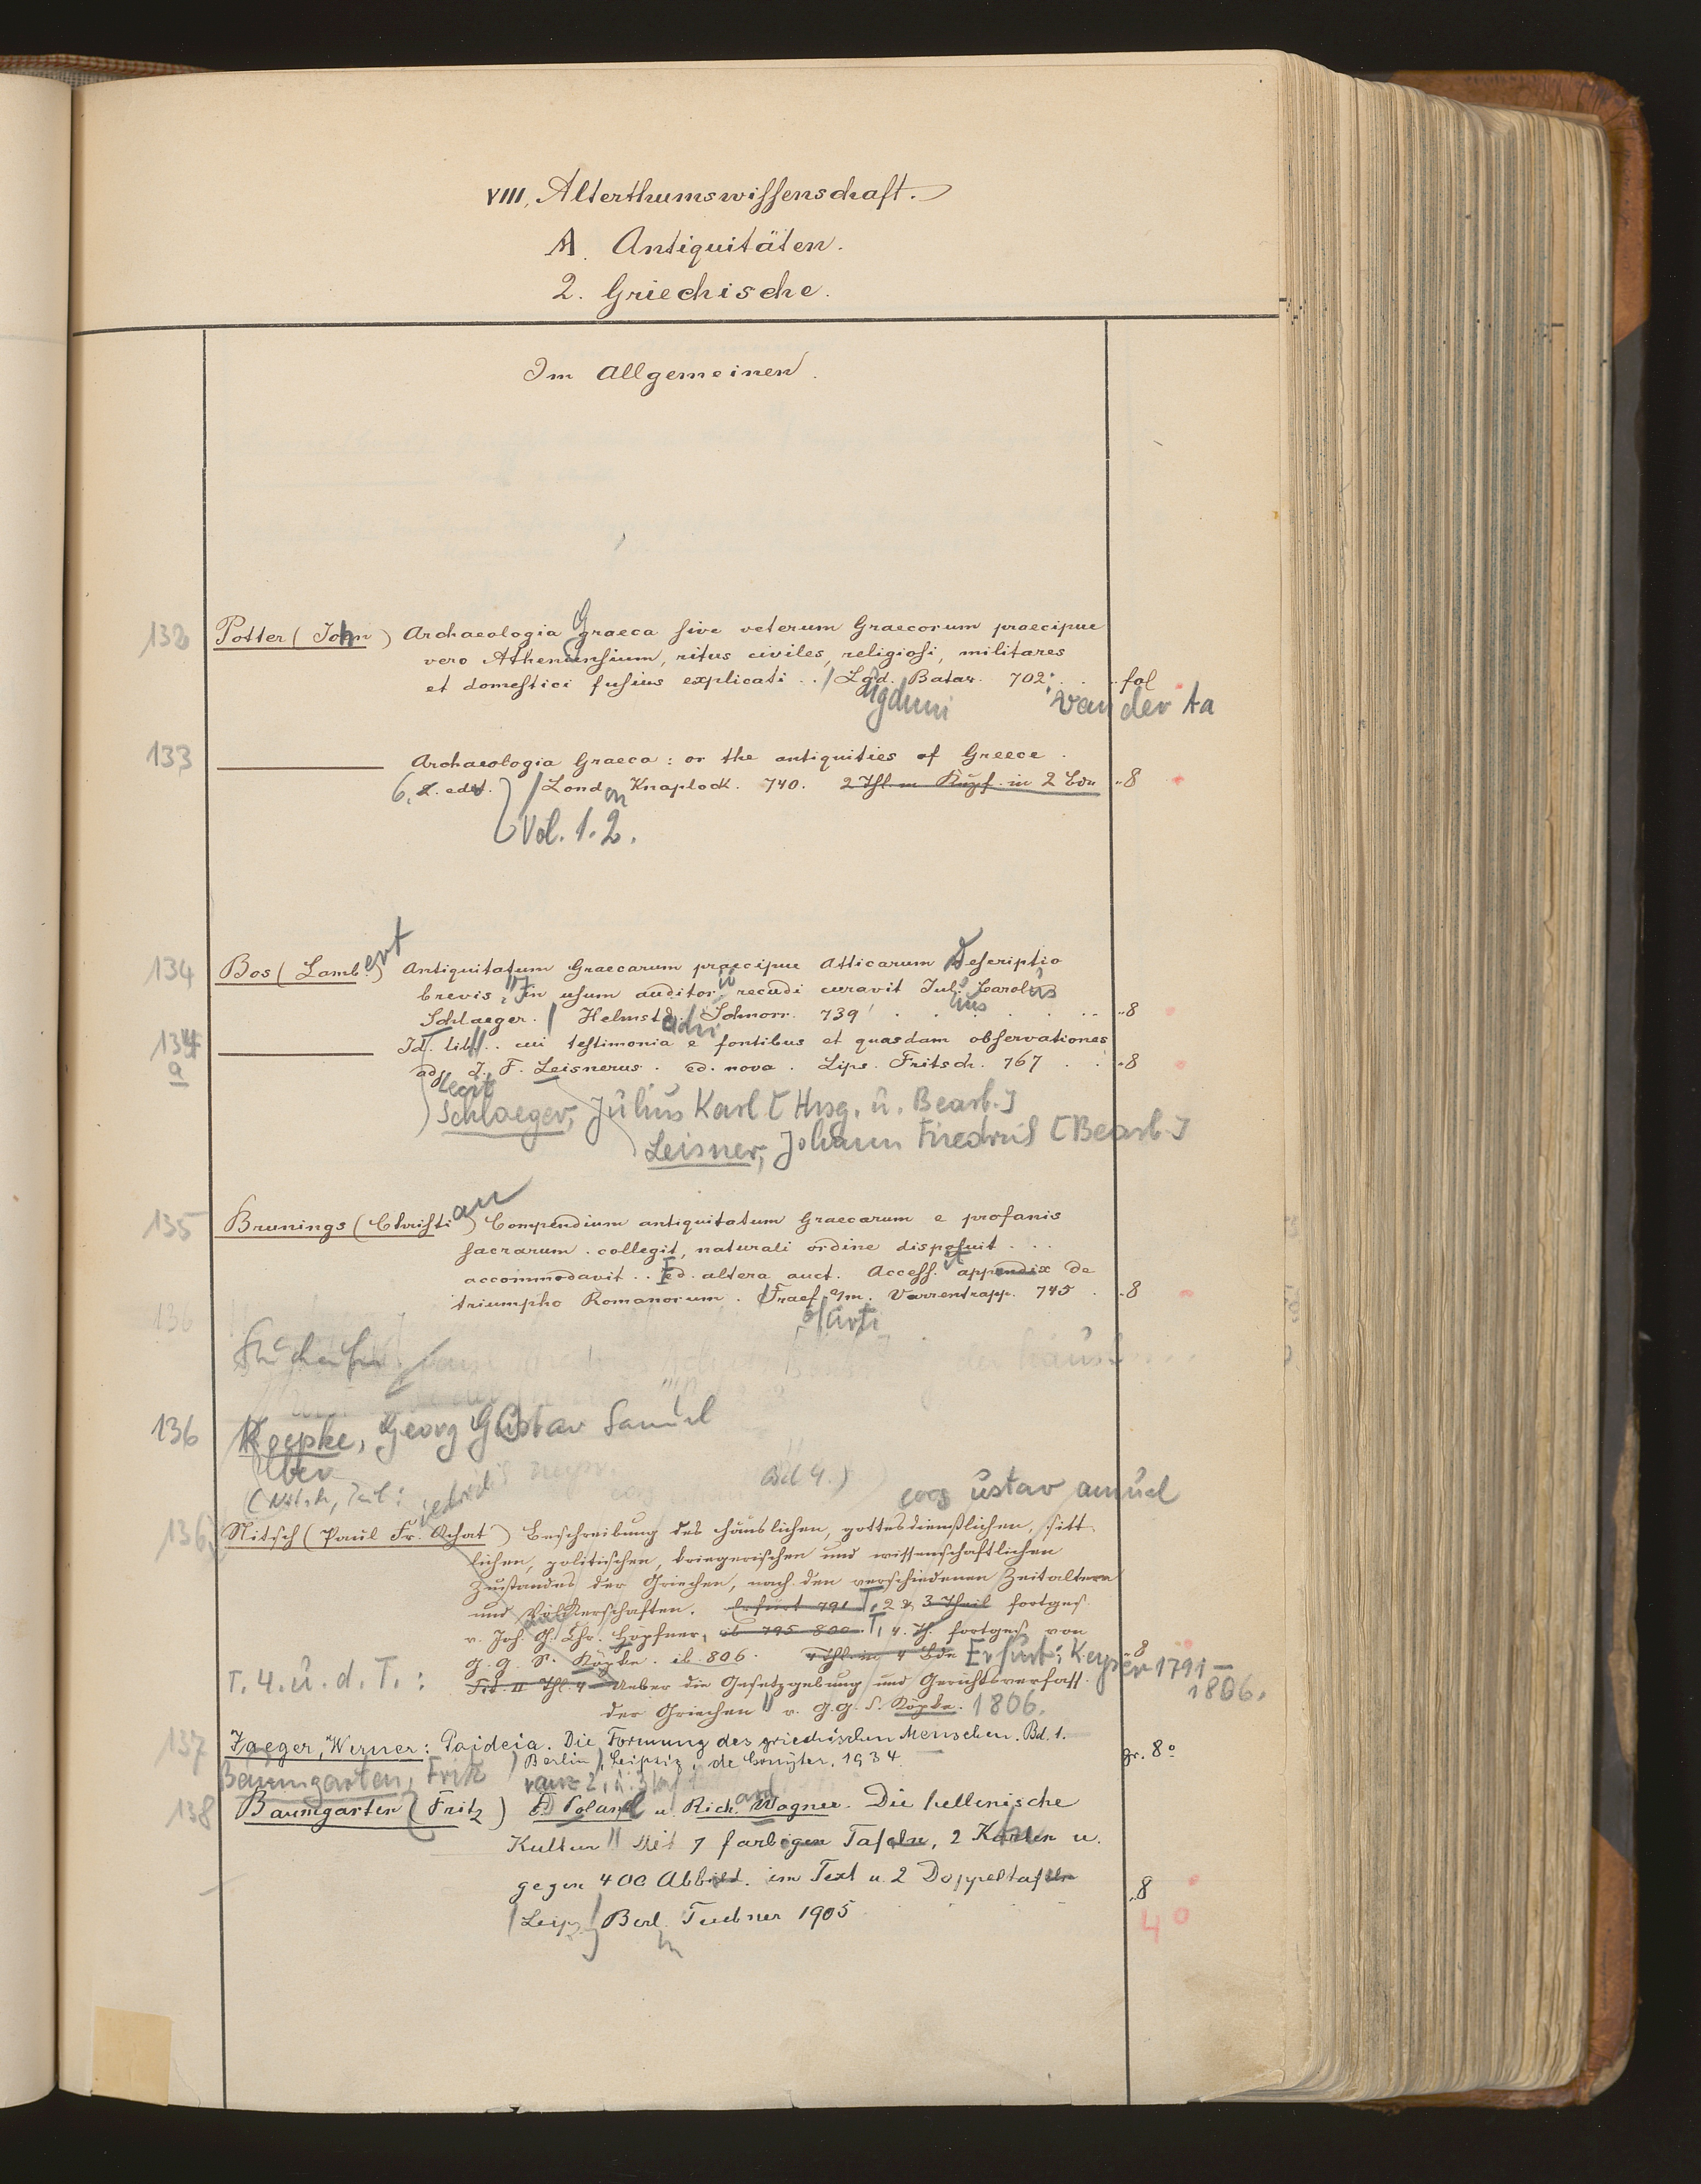 VIII. Alterthumswissenschaft.
A. Antiquitäten.
2. Griechische.
Im Allgemeinen.
132 Potter (John) Archaeologia Graeca sive veterum Graecorum praecipue
vero Atheniensium, ritus civiles, religiosi, militares
et domestici fusius explicati .. / Lgd. Batav. 702. fol
ugduni van der Aa
133 Archaeologia Graeca: or the antiquities of Greece.
6. edit. / London Knaplock. 740. 2 Thl. m Kupf. in 2 Bdn 8
Vol. 1. 2.
134 Bos (Lambert) Antiquitatum Graecarum praecipue Atticarum Descriptio
brevis, In usum auditor. recudi curavit Jul. Carolus
Schlaeger. / Helmstadii Schnorr. 739. 8
134a Id. lib. .. cui testimonia e fontibus et quasdam observationes
adj. J. F. Leisnerus. ed. nova. Lips. Fritsch. 767 8
Schlaeger, Julius Karl [Hrsg. u. Bearb.]
Leisner, Johann Friedrich [Bearb.]
135 Brunings (Christian) Compendium antiquitatum Graecarum e profanis
sacrarum. collegit, naturali ordine disposuit ...
accommodavit .. Ed. altera auct. Access. appendix de
triumpho Romanorum. Fraef. a/m. Varrentrapp. 745. 8
furti
136
136 Koepke, Georg Gustav Samuel
Über
(Nitsch, Paul: Bd 4.)
eorg ustav amuel
136 Nitsch (Paul Fr. Achat) Beschreibung des häuslichen, gottesdienstlichen, sitt-
lichen, politischen, kriegerischen und wissenschaftlichen
Zustandes der Griechen, nach den verschiedenen Zeitaltern
und Völkerschaften. Erfurt 791 T. 2 & 3 Theil fortges.
v. Joh. G. Chr. Höpfner, ib 795–800. T. 4. Th. fortges. von
G. G. S. Köpke. ib. 806. 4 Thl. in 4 Bde Erfurt: Keyser 1791– 8
1806.
T. 4. u. d. T.: Tit. II Thl. 4 Ueber die Gesetzgebung und Gerichtsverfass.
der Griechen v. G. G. S. Köpke. 1806.
137 Jaeger, Werner: Paideia. Die Formung des griechischen Menschen. Bd. 1.
Berlin, Leipzig: de Gruyter, 1934. gr. 8°
Baumgarten, Fritz
138 Baumgarten (Fritz) F. Poland u. Richard Wagner. Die hellenische
Kultur Mit 7 farbigen Tafeln, 2 Karten u.
gegen 400 Abbild. im Text u. 2 Doppeltafeln
/ Leipz. Berl. Teubner 1905 8
4°